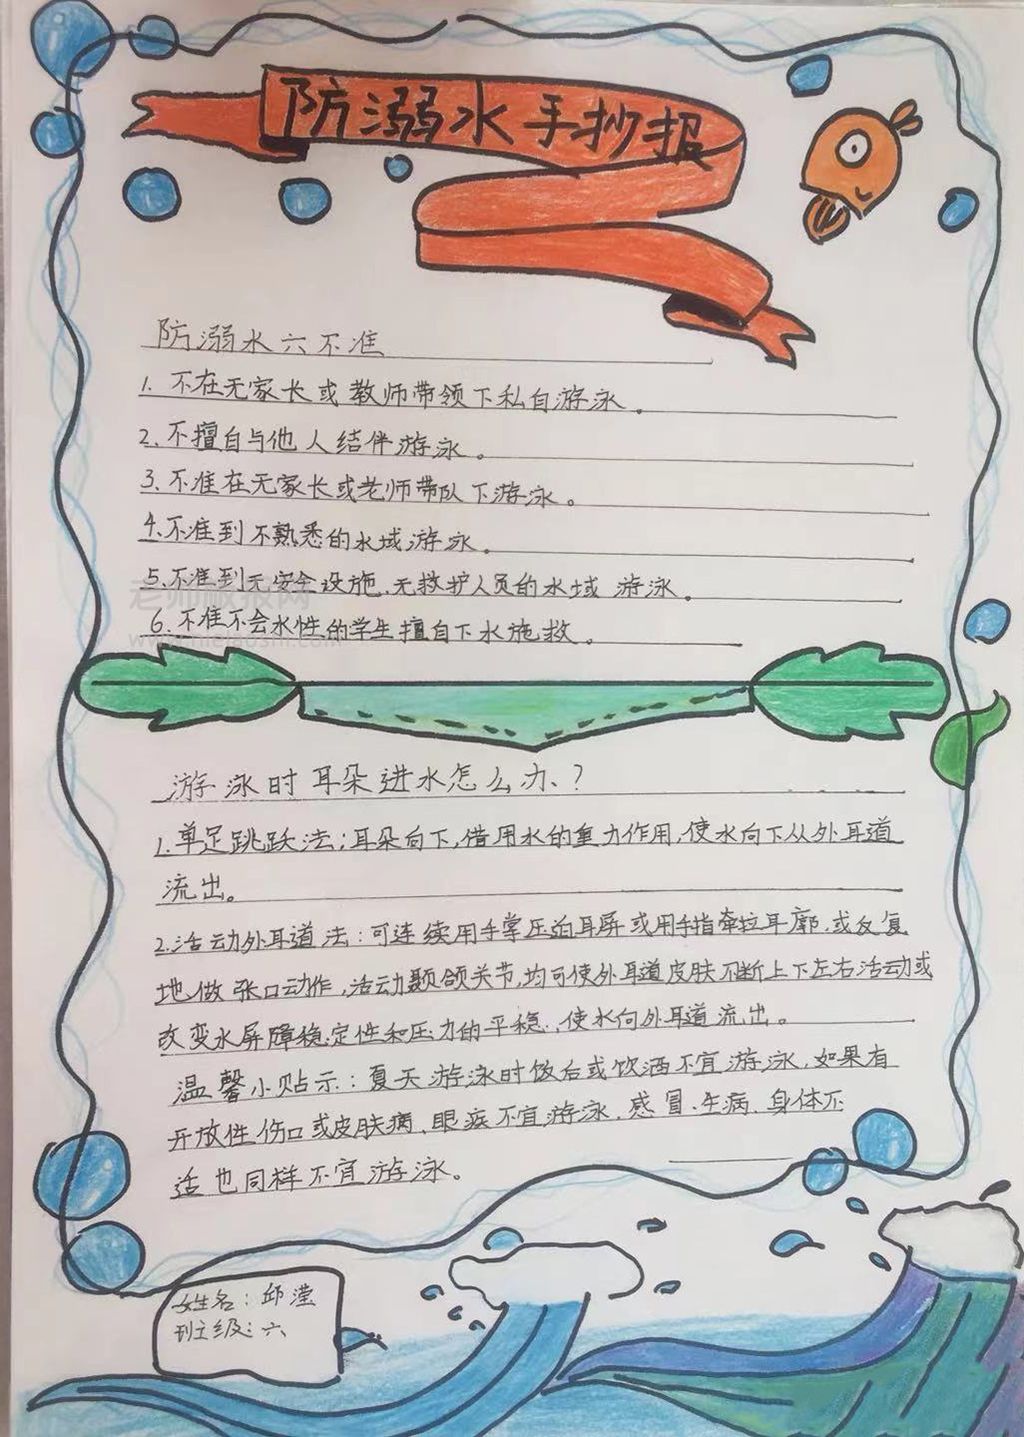 防溺水手抄报
防溺水六不准
1. 不在无家长或教师带领下私自游泳。
2. 不擅自与他人结伴游泳。
3. 不准在无家长或老师带队下游泳。
4. 不准到不熟悉的水域游泳。
5. 不准到无安全设施、无救护人员的水域游泳。
6. 不准不会水性的学生擅自下水施救。
游泳时耳朵进水怎么办？
1. 单足跳跃法；耳朵向下，借用水的重力作用，使水向下从外耳道
流出。
2. 活动外耳道法：可连续用手掌压迫耳屏或用手指牵拉耳廓，或反复
地做张口动作，活动颞颌关节，均可使外耳道皮肤不断上下左右活动或
改变水屏障稳定性和压力的平稳，使水向外耳道流出。
温馨小贴示：夏天游泳时饭后或饮酒不宜游泳，如果有
开放性伤口或皮肤病、眼疾不宜游泳，感冒、生病、身体不
适也同样不宜游泳。
姓名：邱滢
班级：六